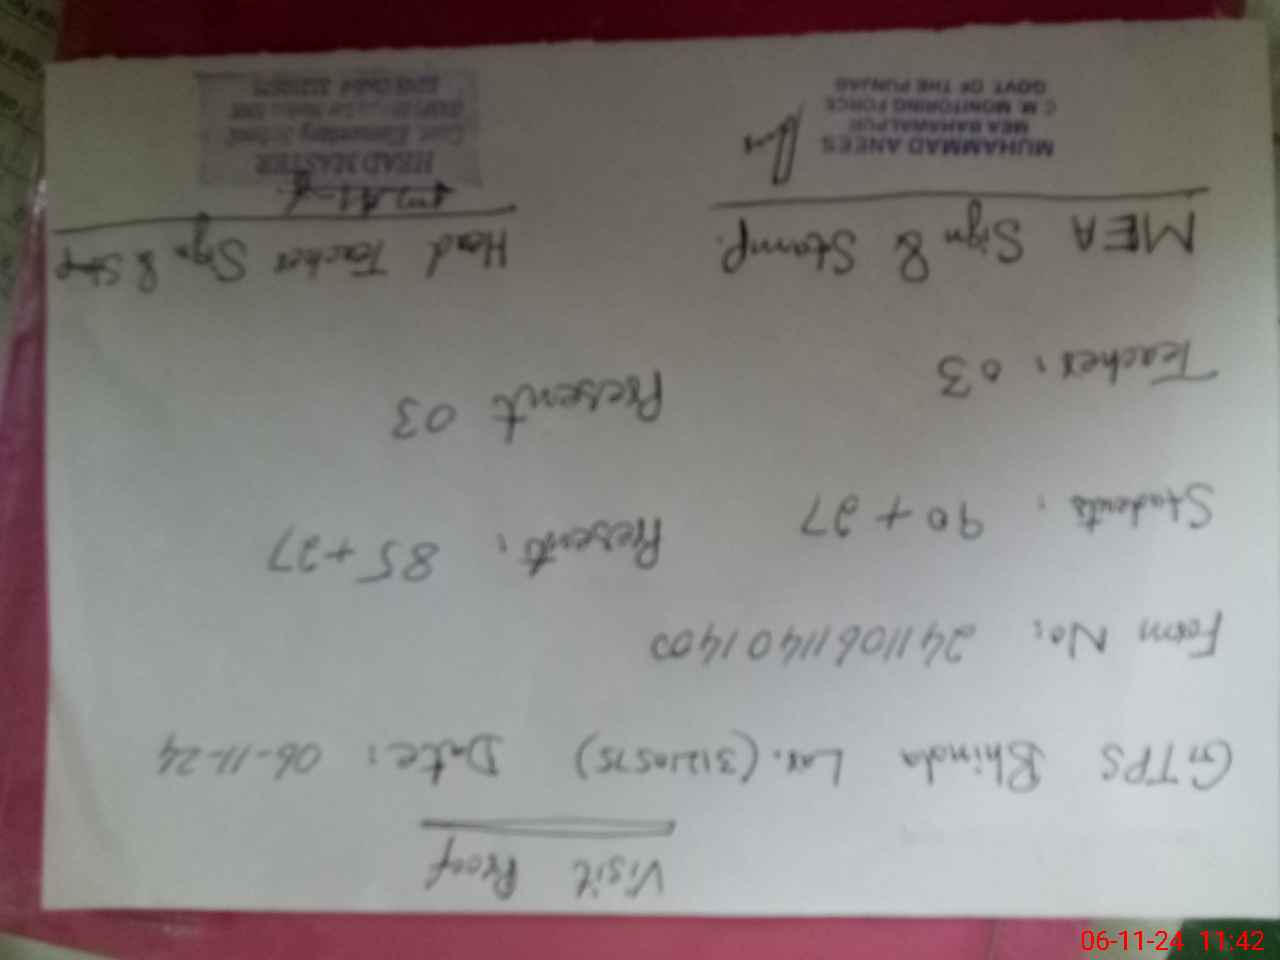 Visit Proof
GTPS Bhinda Lar. (31210575) Date: 06-11-24
Form No: 24110611401400
Students: 90 + 27 Present: 85 + 27
Teacher: 03 Present 03
MEA Sign & Stamp. Head Teacher Sign & Stamp
MUHAMMAD ANEES
MEA BAHAWALPUR
C.M. MONITORING FORCE
GOVT. OF THE PUNJAB
HEAD MASTER
Govt. Elementary School
06-11-24 11:42